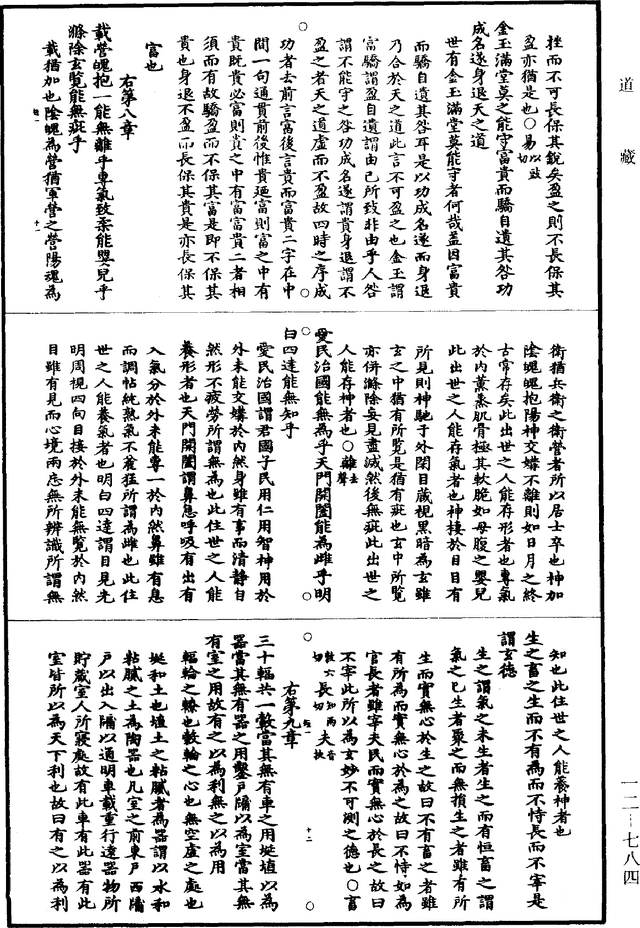 道藏
挫而不可長保其銳矣盈之則不長保其
盈亦猶是也○易以豉切
金玉滿堂莫之能守富貴而驕自遺其咎功
成名遂身退天之道
世有金玉滿堂莫能守者何哉蓋因富貴
而驕自遺其咎耳是以功成名遂而身退
乃合於天之道此言不可盈之也金玉謂
富驕謂盈自遺謂由己所致非由乎人咎
謂不能守之咎功成名遂謂貴身退謂不
盈之者天之道虛而不盈故四時之序成
功者去前言富後言貴而富貴二字在中
間一句通貫前後惟貴廼富則富之中有
貴既貴必富則貴之中有富富貴二者相
須而有故驕盈而不保其富是即不保其
貴也身退不盈而長保其貴是亦長保其
富也
右第八章
載營魄抱一能無離乎專氣致柔能嬰兒乎
滌除玄覽能無疵乎
載猶加也陰魄為營猶軍營之營陽魂為
衛猶兵衛之衛營者所以居士卒也神加
陰魄魄抱陽神交媾不離則如日月之終
古常存矣此出世之人能存形者也專氣
於內薰蒸肌骨極其軟脆如母腹之嬰兒
此出世之人能存氣者也神棲於目目有
所見則神馳于外閉目蔵視黑暗為玄雖
玄之中猶有所覽是猶有疵也玄中所覽
亦併滌除妄見盡滅然後無疵此出世之
人能存神者也○離去聲
愛民治國能無為乎天門開闔能為雌乎明
白四達能無知乎
愛民治國謂君國子民用仁用智神用於
外未能交媾於內然身雖有事而清靜自
然形不疲勞所謂無為也此住世之人能
養形者也天門開闔謂鼻息呼吸有出有
入氣分於外未能專一於內然鼻雖有息
而調帖純熟氣不麄猛所謂為雌也此住
世之人能養氣者也明白四達謂目見光
明周視四向目接於外未能無覽於內然
目雖有見而心境兩忘無所辨識所謂無
知也此住世之人能養神者也
生之畜之生而不有為而不恃長而不宰是
謂玄德
生之謂氣之未生者生之而有恒畜之謂
氣之已生者聚之而無損生之者雖有所
生而實無心於生之故曰不有畜之者雖
有所為而實無心於為之故曰不恃如為
官長者雖宰夫民而實無心於長之故曰
不宰此所以為玄妙不可測之德也○畜
敕六切長知兩切夫音扶
右第九章
三十輻共一轂當其無有車之用埏埴以為
器當其無有器之用鑿戶牖以為室當其無
有室之用故有之以為利無之以為用
輻輪之轑也轂輪之心也無空虛之處也
埏和土也埴土之粘膩者為器謂以水和
粘膩之土為陶器也凡室之前東戶西牖
戶以出入牖以通明車載重行遠器物所
貯蔵室人所寢處故有此車有此器有此
室皆所以為天下利也故曰有之以為利
一二—七八四